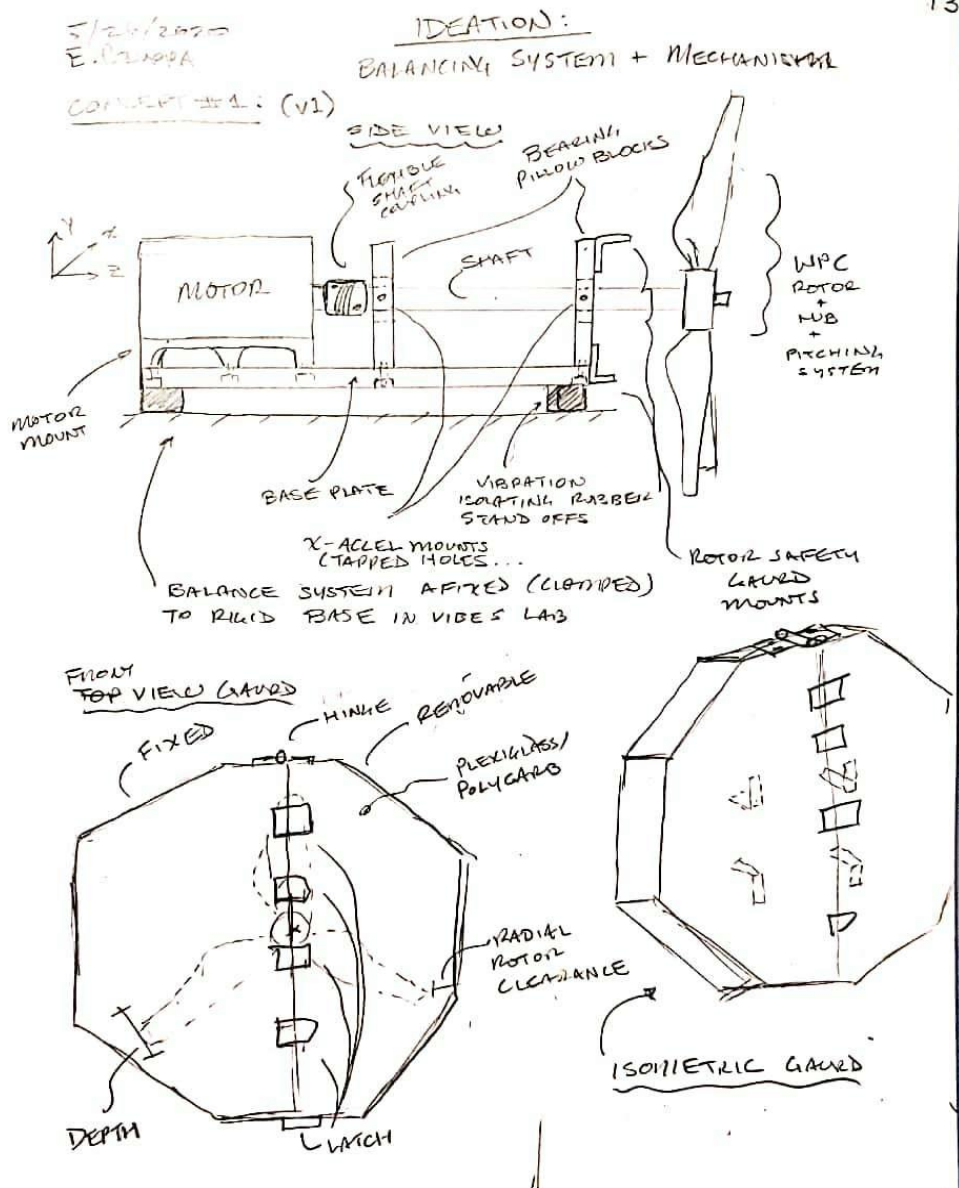 13
IDEATION:
BALANCING SYSTEM + MECHANISM
E.
CONCEPT #1: (v1)
SIDE VIEW
FLEXIBLE
SHAFT
COUPLING
BEARING
PILLOW BLOCKS
Y
X
Z
MOTOR
SHAFT
WPC
ROTOR
+
HUB
+
PITCHING
SYSTEM
MOTOR
MOUNT
BASE PLATE
VIBRATION
ISOLATING RUBBER
STAND OFFS
X-ACCEL MOUNTS
(TAPPED HOLES...
ROTOR SAFETY
GAURD
MOUNTS
BALANCE SYSTEM AFIXED (CLAMPED)
TO RIGID BASE IN VIBES LAB
FRONT
TOP VIEW GAURD
FIXED
HINGE
REMOVABLE
PLEXIGLASS/
POLYCARB
RADIAL
ROTOR
CLEARANCE
DEPTH
LATCH
ISOMETRIC GAURD